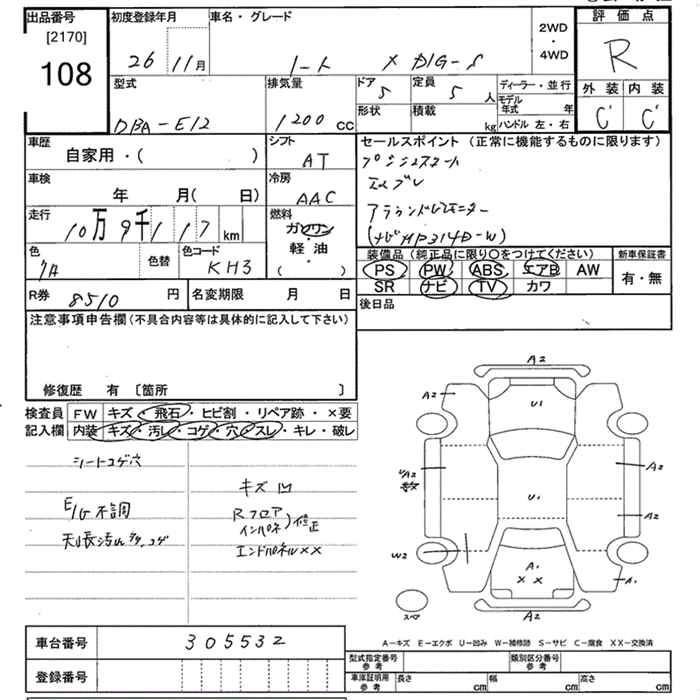 出品番号
[2170]
108
初度登録年月
26 11月
車名・グレード
ノート X DIG-S
2WD
・
4WD
評価点
R
外装 内装
C' C'
型式
DBA-E12
排気量
1200 cc
ドア
5
定員
5 人
形状
積載
kg
ディーラー・並行
モデル年式 年
ハンドル 左・右
車歴
自家用・( )
シフト
AT
車検
年 月( 日)
冷房
AAC
走行
10万 9千 117 km
燃料
ガソリン
軽・油
( )
色
色替
色コード
KH3
R券 8510 円
名変期限 月 日
セールスポイント(正常に機能するものに限ります)
プッシュスタート
エマブレ
アラウンドビューモニター
(ナビMP314D-W)
装備品(純正品に限り○をつけてください)
新車保証書
PS PW ABS エアB AW
SR ナビ TV カワ
有・無
後日品
注意事項申告欄(不具合内容等は具体的に記入して下さい)
修復歴 有 〔箇所 〕
検査員
記入欄
FW キズ・飛石・ヒビ割・リペア跡・×要
内装 キズ・汚レ・コゲ・穴・スレ・キレ・破レ
シートコゲ穴
E/G不調
天張汚レ コゲ
キズ凹
Rフロア
インパネ)修正
エンドパネル××
A2
A2
U1
A2
U1
A2
W2
A1
× ×
A1
A2
スペア
A-キズ E-エクボ U-凹み W-補修跡 S-サビ C-腐食 XX-交換済
車台番号 305532
登録番号
型式指定番号
参考
類別区分番号
参考
車庫証明用
参考
長さ cm
幅 cm
高さ cm